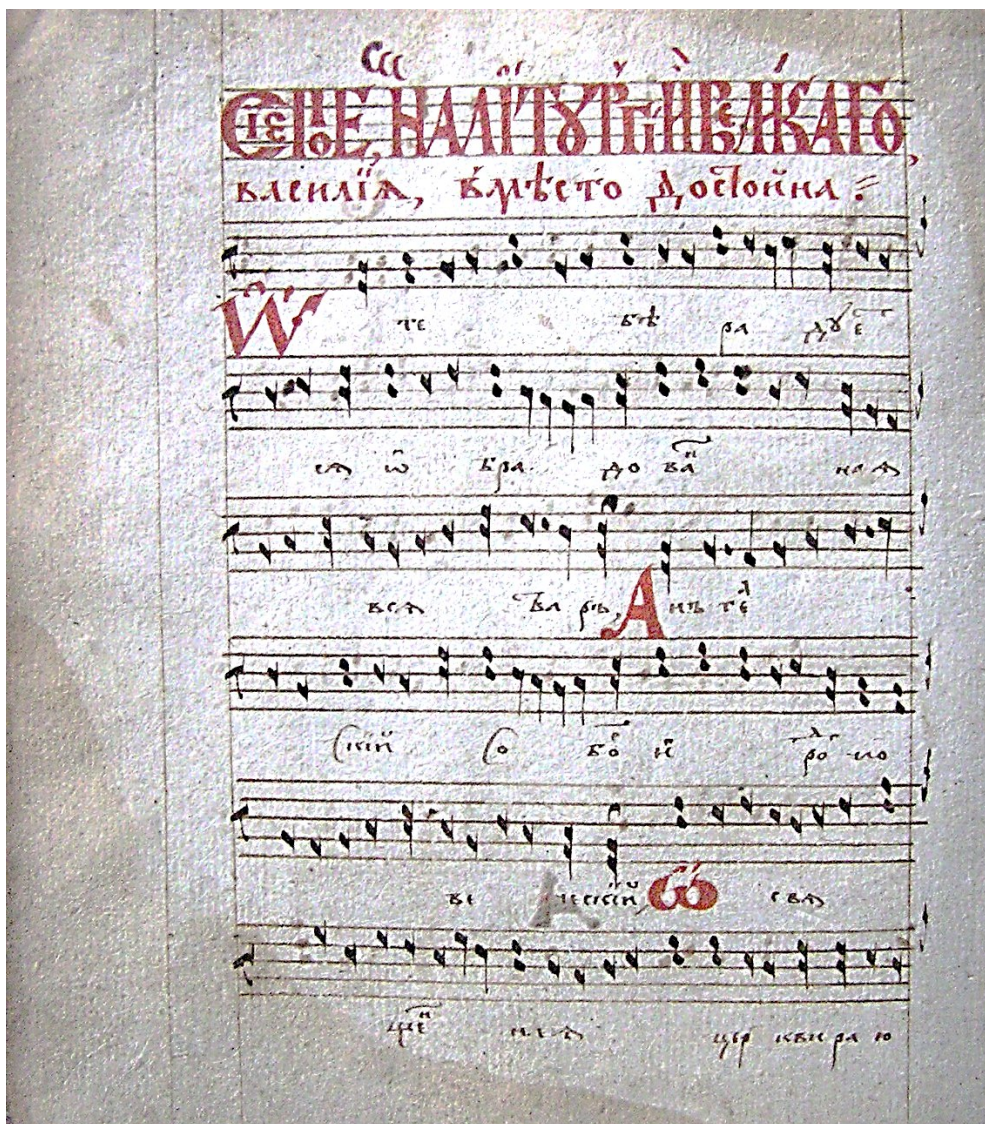 НА ЛІТУРГІИ ВЕЛИКАГО
василїѧ, вмѣсто достойна
Ѡ те бѣ ра дуе
сѧ ѡ бра до ван наѧ
всѧ тварь, А нъ ге
скій со бо и ро ло
ве ческій, Ѡ свѧ
щен наѧ цер кви ра ю